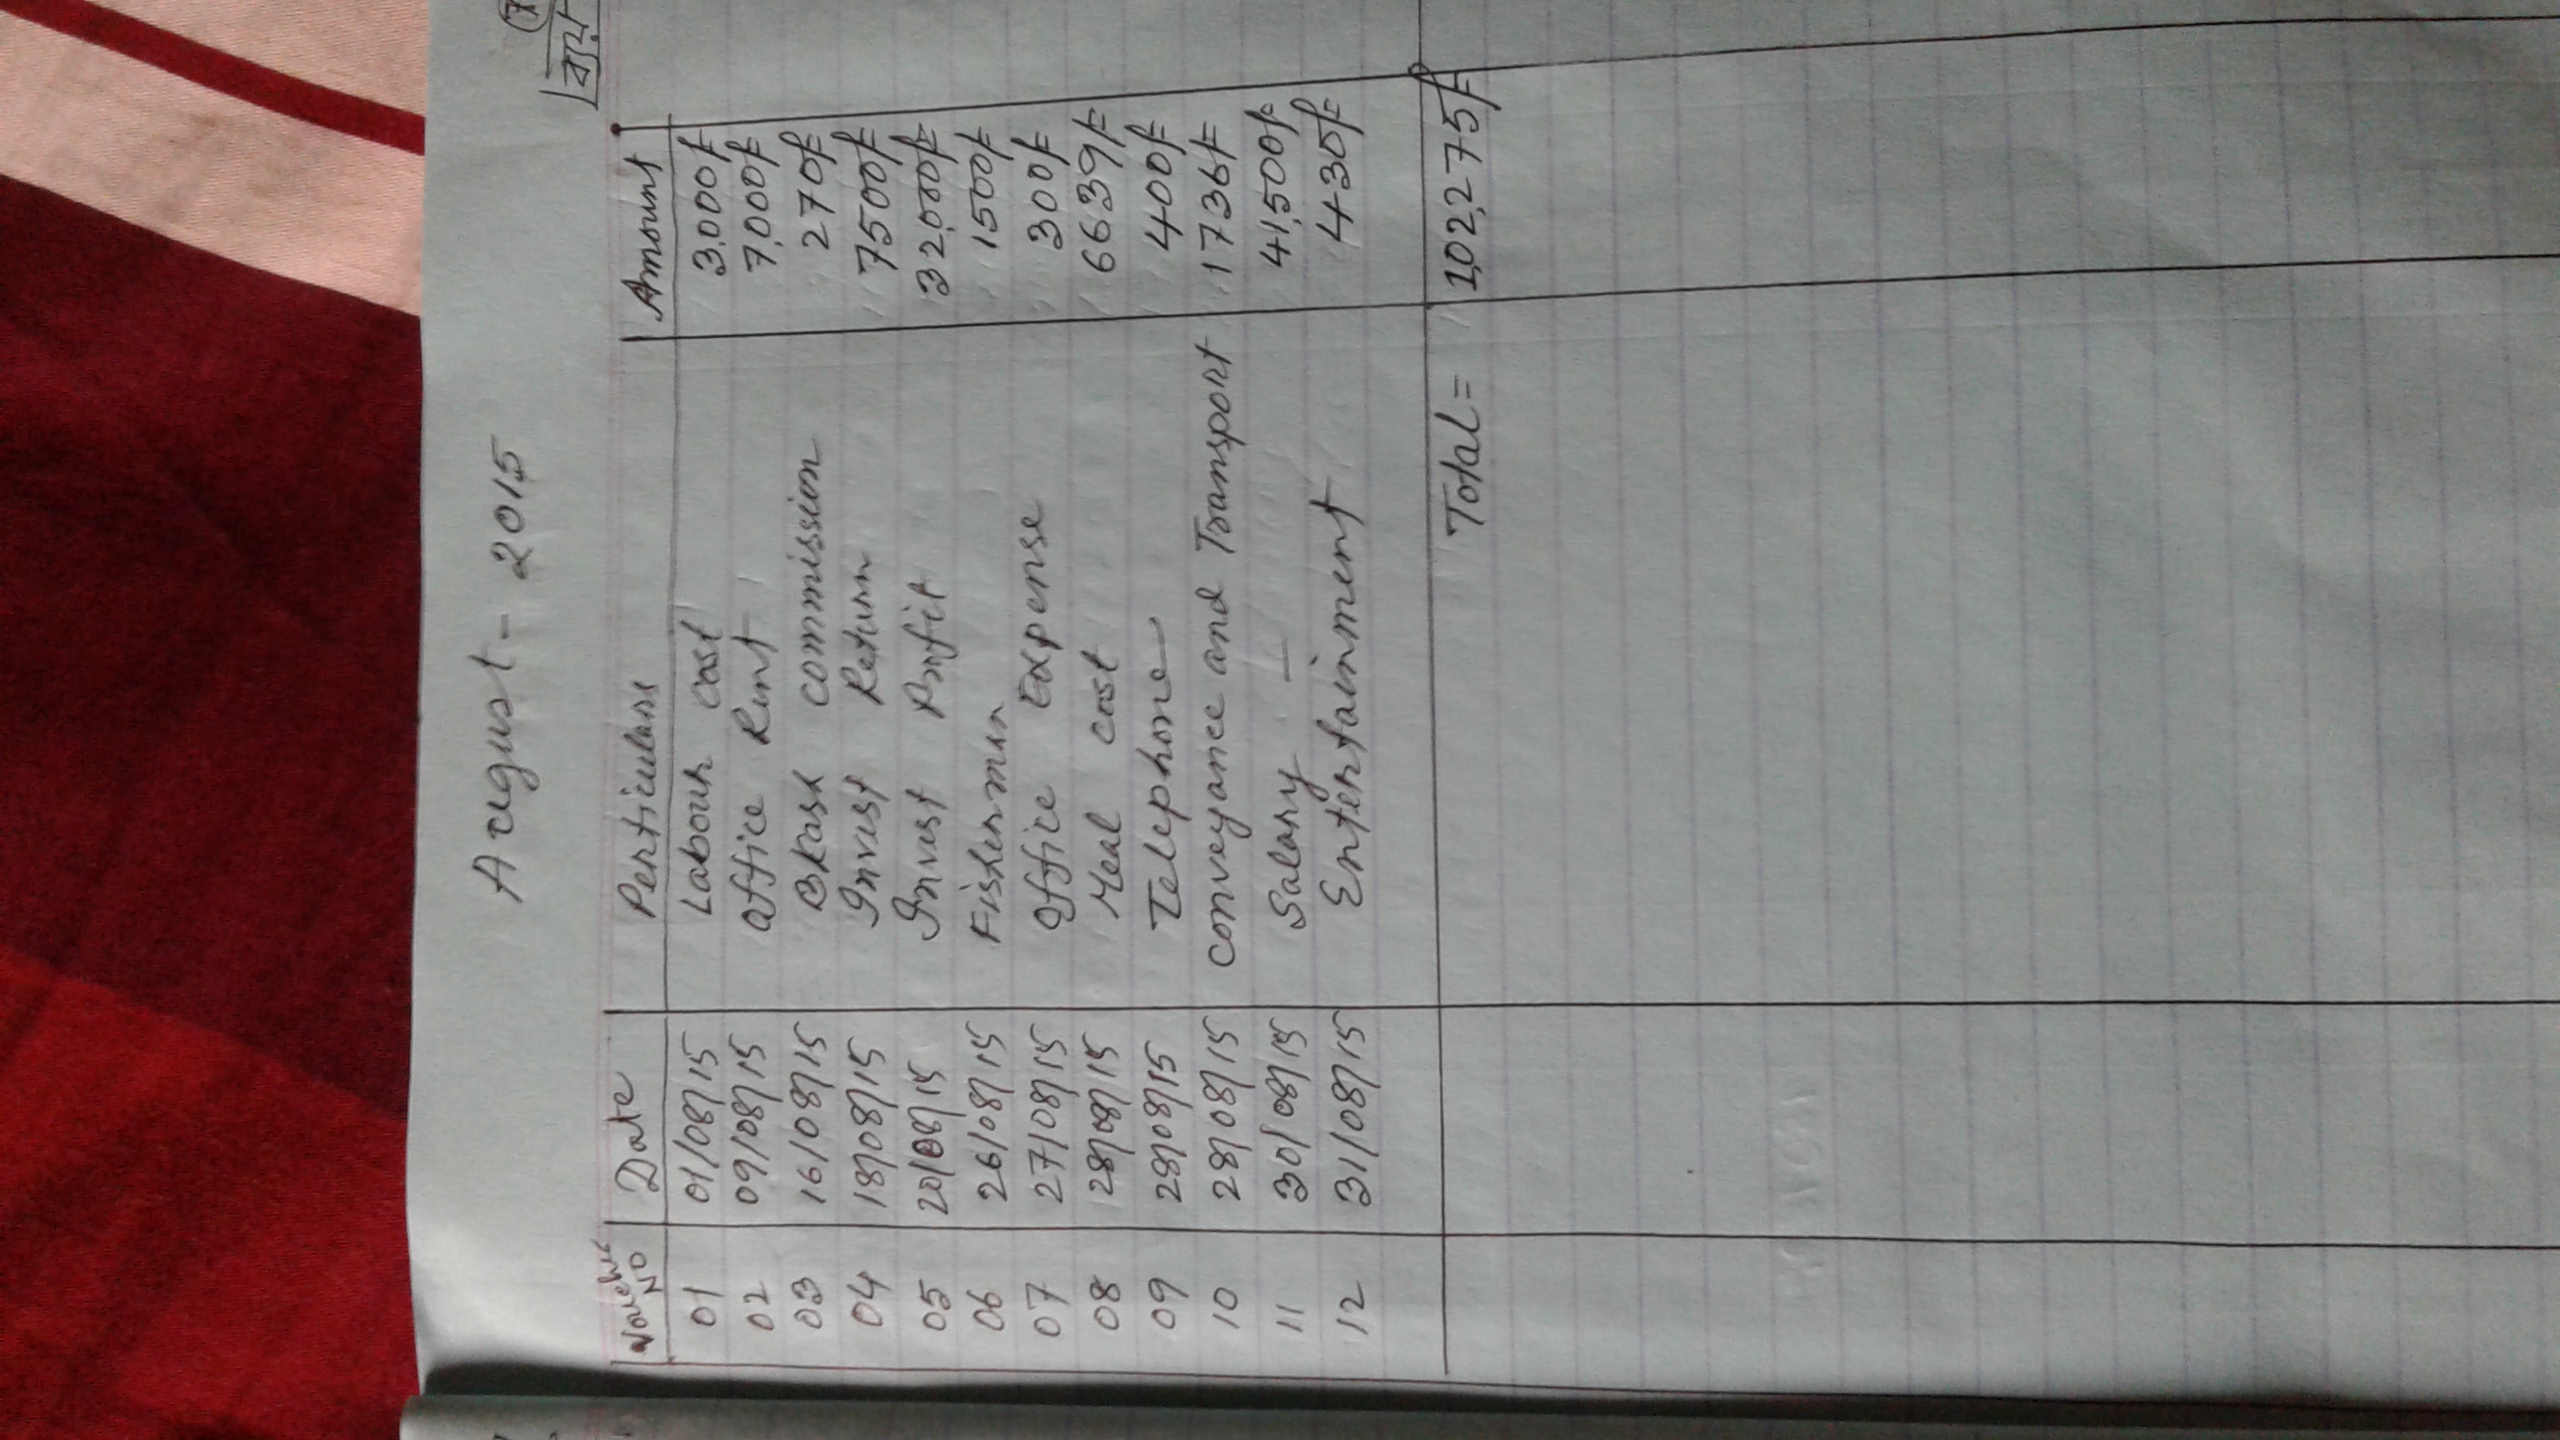 August - 2015
7
ব্যয়
Voucher NO Date Perticulars Amount
01 01/08/15 Labour cost 3,000/=
02 09/08/15 Office Rent 7,000/=
03 16/08/15 BKash commission 270/=
04 18/08/15 Invest Return 7500/=
05 20/08/15 Invest Profit 32,000/=
06 26/08/15 Fisherman 1500/=
07 27/08/15 Office Expense 300/=
08 28/08/15 Meal cost 6639/=
09 28/08/15 Telephone 400/=
10 28/08/15 Conveyance and Transport 1736/=
11 30/08/15 Salary – 41,500/=
12 31/08/15 Entertainment 430/=
Total = 1,02,275/=